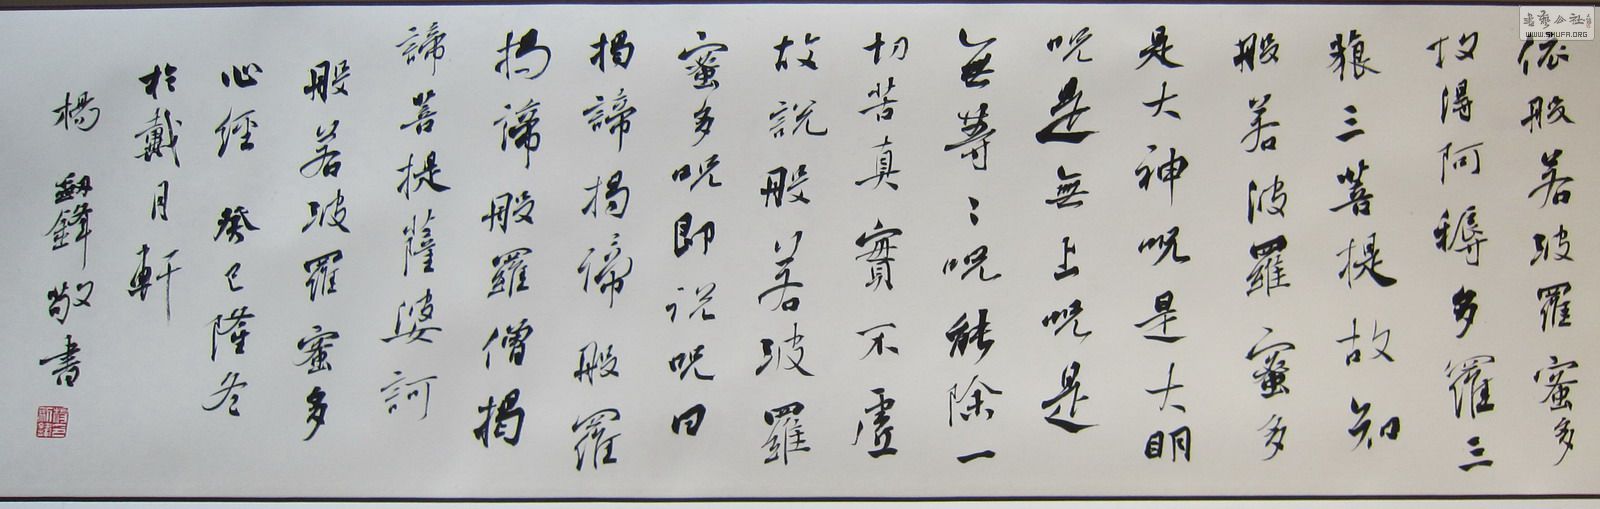 依般若波羅蜜多
故得阿耨多羅三
藐三菩提故知
般若波羅蜜多
是大神呪是大明
呪是無上呪是
無等〻呪能除一
切苦真實不虛
故說般若波羅
蜜多呪即説呪曰
揭諦揭諦般羅
揭諦般羅僧揭
諦菩提薩婆訶
般若波羅蜜多
心經 癸巳隆冬
於戴月軒
楊劔鋒敬書
書藝公社
WWW.SHUFA.ORG